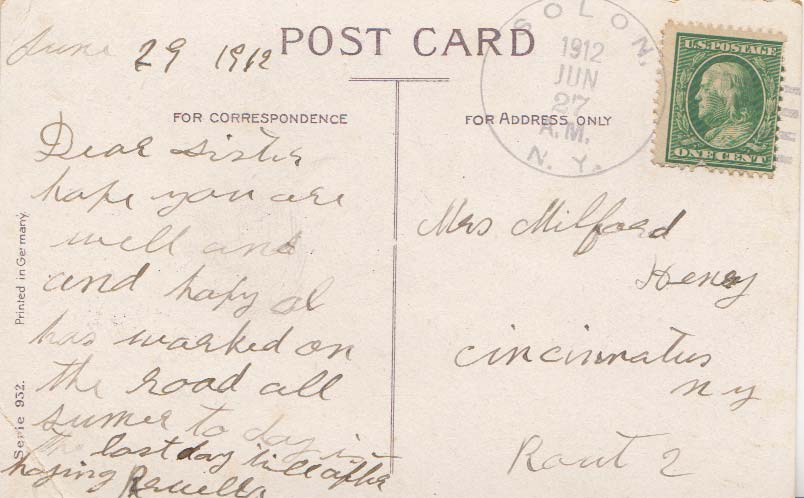 June 29 1912
POST CARD
SOLON.
1912
JUN
27
A.M.
N.Y.
U.S. POSTAGE
ONE CENT
FOR CORRESPONDENCE
FOR ADDRESS ONLY
Dear sister
hope you are
well and
and hapy al
has worked on
the road all
sumer to day is
the last day till after
haying
Mrs Milford
Henry
cincinnatus
ny
Rout 2
Printed in Germany.
Serie 932.